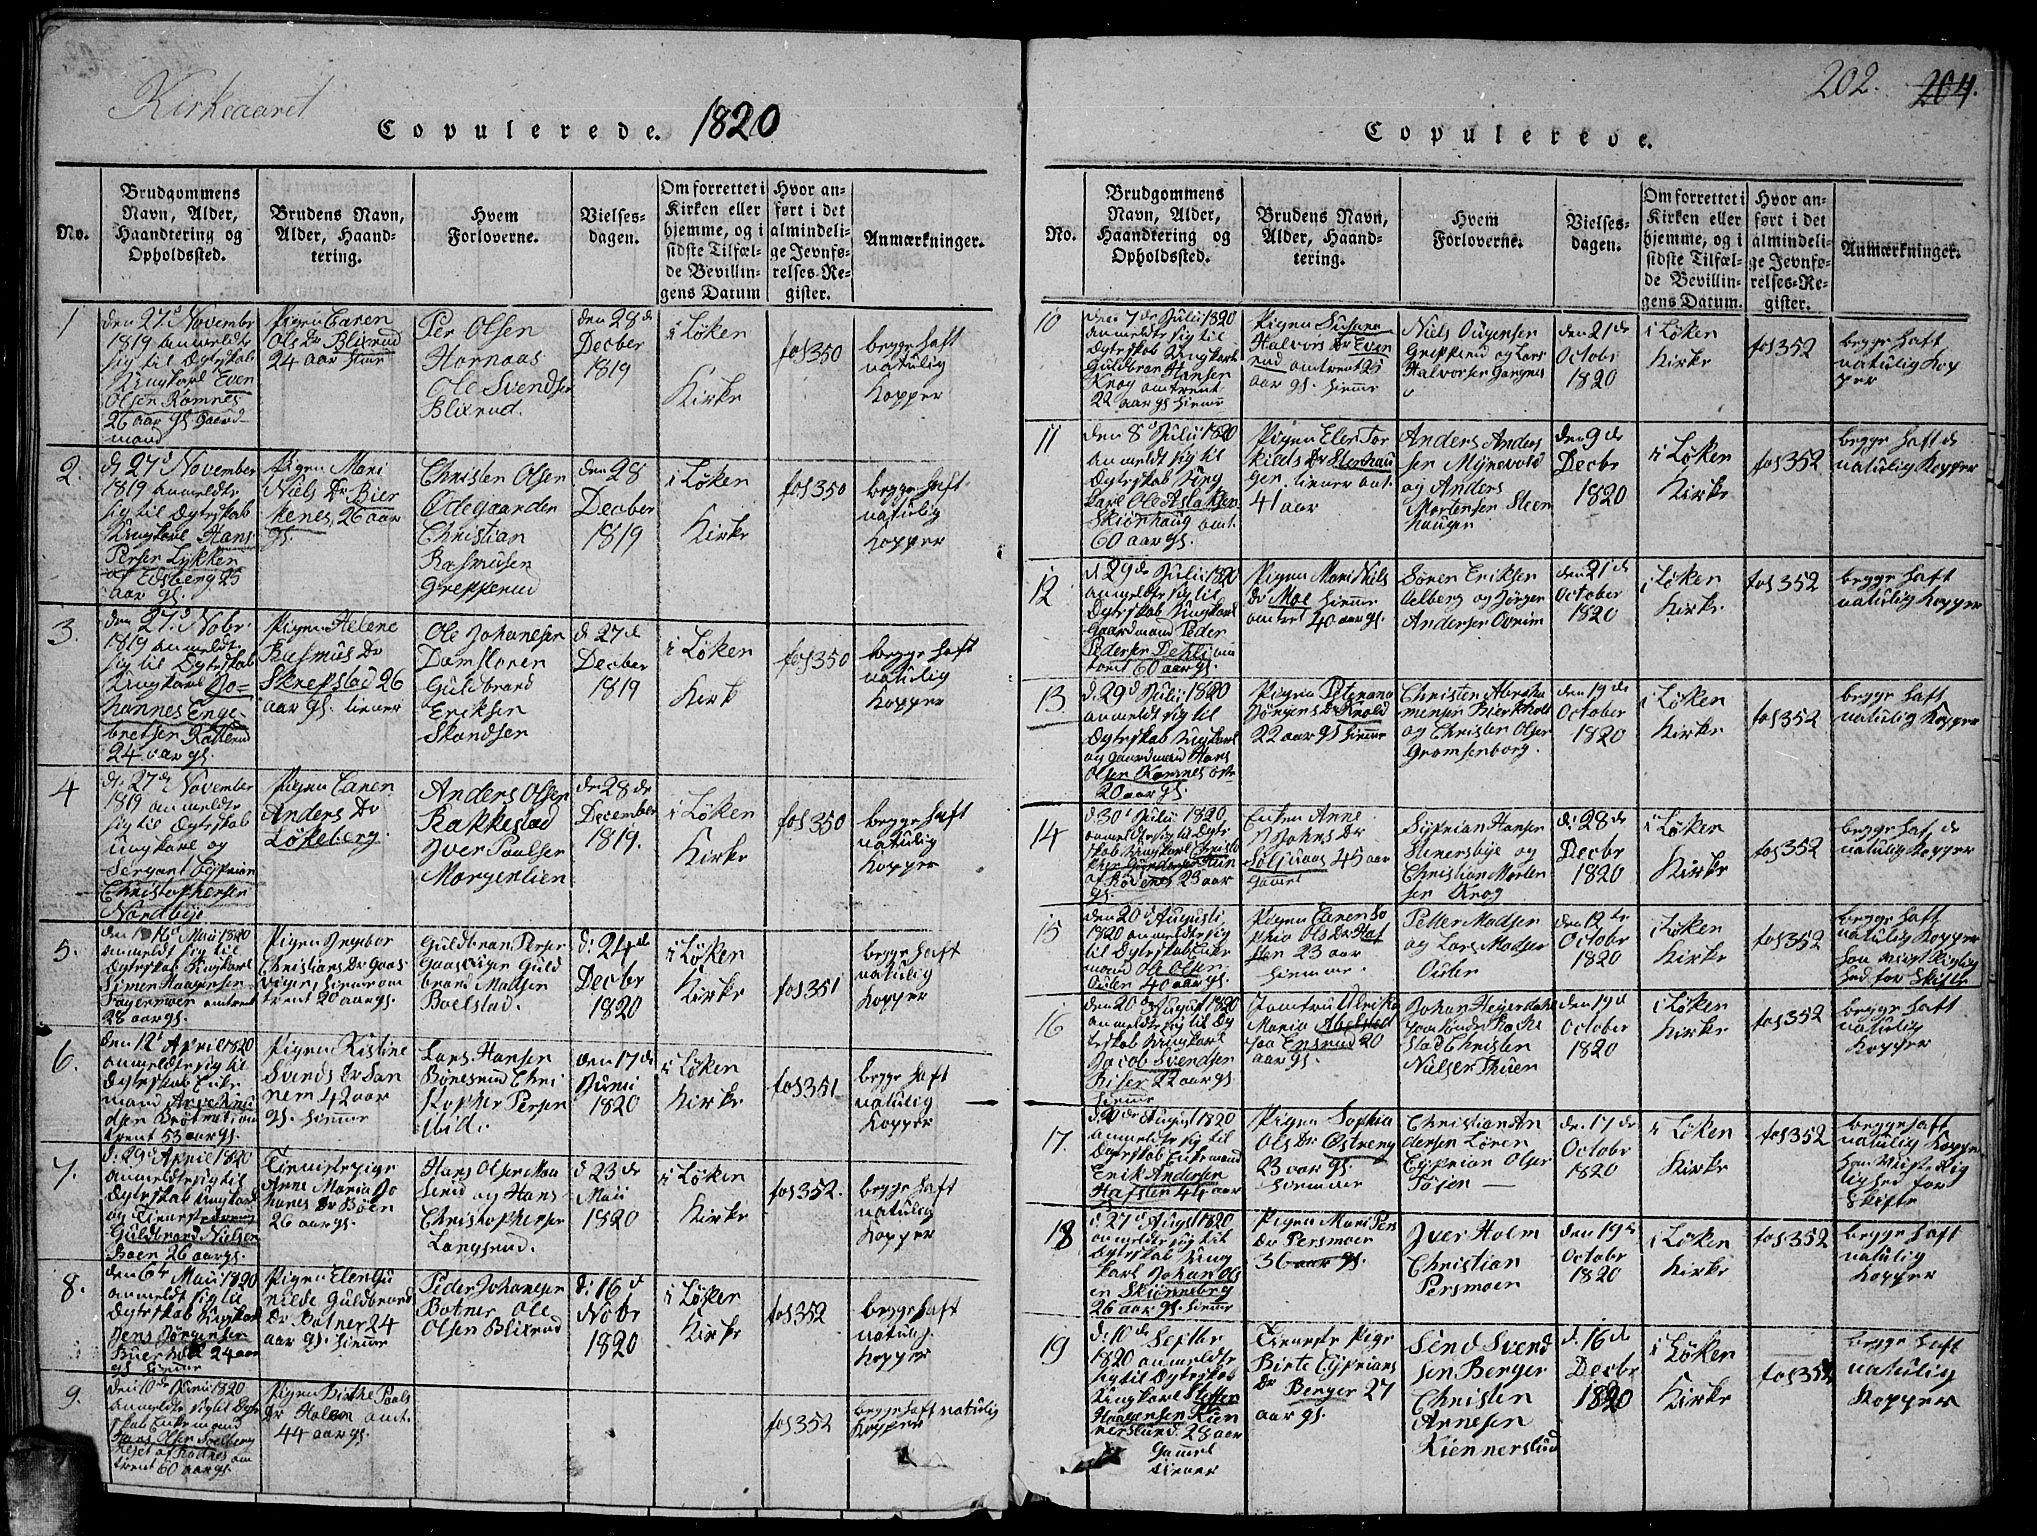 Kirkeaaret
Copulerede. 1820
No.
Brudgommens
Navn, Alder,
Haandtering og
Opholdssted.
Brudens Navn,
Alder, Haand-
tering.
Hvem
Forloverne.
Vielses-
dagen.
Om forrettet i
Kirken eller
hjemme, og i
sidste Tilfæl-
de Bevillin-
gens Datum
Hvor an-
ført i det
almindeli-
ge Jevnfø-
relses-Re-
gister.
Anmærkninger.
1
den 27d Novembr
1819 anmeldte
sig til Ægteskab
Ungkarl Even
Olsen Romnes
26 aar gl. gaard-
mand
Pigen Caren
Ols Dr Blixrud
24 aar hiemme
Per Olsen
Hornaas
Ole Svendsen
Blixrud.
den 28 de
Decber
1819
i Løken
Kirke
fol 350
begge haft
natulig
Kopper
2.
d 27d November
1819 anmeldte
sig til Ægteskab
Ungkarl Hans
Persen Lykken
af Edsberg 25
aar gl.
Pigen Mari
Niels Dr Bier
kenes, 26 aar
gl.
Christen Olsen
Ødegaarden
Christian
Rasmusen
Grepperud
den 28
Decber
1819
i Løken
Kirke
fol 350
begge haft
natulig
Kopper
3.
den 27d Nobr.
1819 anmeldte
sig til Ægteskab
Ungkarl Jo-
hannes Enge-
bretsen
24 aar gl.
Pigen Helene
Rasmus Dr
Skrepstad 26
aar gl. tiener
Ole Johanesen
Damstoren
Guldbrand
Eriksen
Skandsen
d. 27 d
Decber
1819
i Løken
Kirk
fol 350
begge haft
natulig
Kopper
4
d. 27 d November
1819 anmeldte
sig til Ægteskab
Ungkarl og
Sergant Cyprian
Christophersen
Nordbye
Pigen Caren
Anders Dr
Løkeberg.
Anders Olsen
Rakkestad
Iver Paulsen
Morgenlien
den 28 d
December
1819.
i Løken
Kirke
fol 350
begge haft
natulig
Kopper
5.
den 16d Maii 1820
anmeldt sig til
Ægteskab Ungkarl
Simen Haagensen
Fagermoen omtrent
28 aar gl.
Pigen Ingebor
Christians Dr Gaas
viger, hiemme om
trent 20 aar gl.
Guldbran Persen
Gaasviger Guld
brand Madsen
Boelstad
d: 24 d
Decbr
1820
i Løken
Kirke
fol 351
begge haft
natulig
Kopper
6.
den 12t April 1820
anmeldte sig til
Ægteskab Enke
mand Arve Knu
dsen om
trent 53 aar gl.
Pigen Kistine
Svends Dr San
nem 42 aar
gl. hiemme
Lars Hansen
Børresrud Chri
stopher Persen
ibid.
den 17 de
Junii
1820
i Løken
Kirke
fol 351
begge haft
natulig
Kopper
7.
d: 29d April 1820
anmeldte sig til
Ægteskab Ungkarl
og Tieneste
Guldbrand Nielsen
Boen 26 aar gl.
Tienistepige
Anne Maria Jo
hanes Dr Böen
26 aar gl.
Hans Olsen
og Hans
Christophersen
Langsrud.
d 23 de
Maii
1820
i Løken
Kirke
fol 352.
begge haft
natulig
Kopper
8.
den 6te Maii 1820
anmeldt sig til
Ægteskab Ungkarl
Jens Jørgensen
24 aar
gl hiemme
Pigen Elen Gu
nilde Guldbrand
Dr Botner 24
aar gl. hiemme
Peder Johanesen
Botner Ole
Olsen Blixrud
d: 16 d
Nobr
1820
i Løken
Kirke
fol 352
begge haft
natulig
Kopper
9.
den 10 de Junii 1820
anmeldte sig til Ægte
skab Enkemand
Hans Olsen
om
trent 60 aar gl.
Pigen Birthe Paals
Dr Holen omt.
44 aar gl.
fol 352
begge haft natulig
Kopper
202. 204.
Copulerede.
No.
Brudgommens
Navn, Alder,
Haandtering og
Opholdssted.
Brudens Navn,
Alder, Haand-
tering.
Hvem
Forloverne.
Vielses-
dagen.
Om forrettet i
Kirken eller
hjemme, og i
sidste Tilfæl-
de Bevillin-
gens Datum.
Hvor an-
ført i det
almindeli-
ge Jevnfø-
relses-Re-
gister.
Anmærkninger.
10
den 7de Julii 1820
anmeldte sig til
Ægteskab Ungkarl
Guldbran Hansen
Krog omtrent
22 aar gl hiemme
Pigen Susane
Halvors Dr Even
rud omtrent 25
aar gl. hiemme
Niels Ougensen
Grepperud og Lars
Halvorsen
den 21 de
Octobr
1820
i Løken
Kirke
fol 352
begge haft
natulig Kop
per
11
den 8d Julii 1820
anmeldt sig til
Ægteskab Ung
karl Ole Aslaksen
Skiönhaug omt.
60 aar gl.
Pigen Elen Tor
kilds Dr Stenhau
gen. tiener omt.
41 aar
Anders Anders
sen Mynevold
og Anders
Mortensen Steen
haugen
den 9 de
Decbr
1820
i Løken
Kirke
fol 352
begge haft de
natulig Kopper
12
d 29 de Julii 1820
anmeldte sig til
Ægteskab Ungkarl
Gaardmand Peder
Pedersen Dehli om
trent 60 aar gl.
Pigen Mari Niels
Dr Moe hiemme
omtrent 40 aar gl.
Sören Eriksen
og Jörgen
Andersen
den 21 de
October
1820
i Løken
Kirke
fol 352
begge haft
natulig Kopper
13
d. 29d Julii 1820
anmeldte sig til
Ægteskab Ungkarl
og gaardmand Hans
Olsen Romnes
20 aar gl.
Pigen Peternna
Jörgens Dr Krold
22 aar gl hiemme
Christen Abraha
mensen Bierkholt
og Christen Olsen
Gromsenborg.
den 19 de
October
1820
i Løken
Kirke
fol 352
begge haft
natulig Kopper
14
d. 30t Julii 1820
anmeldte sig til Ægte
skab Ungkarl Christo
pher
af Rödenes 23 aar
gl.
Enken Anne
Johns Dr
45 aar
gamel
Syprian Hansen
Slinersbye og
Christian Morten
sen Krog
d: 28 de
Decbr
1820
i Løken
Kirke
fol 352
begge haft de
natulig Kopper
15
den 20d Augusti
1820 anmeldte sig
til Ægteskab Enke
mand Ole Olsen
Outen 40 aar gl.
Pigen Caren So
phia Ols Dr Haf
sten 23 aar
hiemme
Petter Madsen
og Lars Madsen
Outen
den 12 te
October
1820
i Løken
Kirke
fol 352
begge haft
natulig Kopper
han
hed for Skifte
16
den 20 August 1820
anmeldte sig til Æg
teskab Ungkarl
Jacob Svendsen
Riser 22 aar gl.
hiemme
Jomfru Ulrikka
Maria
paa Ensrud 20
aar gl.
Johan
paa
stad Christen
Nielsen Thuen
den 19 d
October
1820
i Løken
Kirke
fol 352
begge haft
natulig
Kopper
17.
d: 20 de August 1820
anmeldte sig til
Ægteskab Enkemand
Erik Andersen
Hafsten 44 aar
Pigen Sophia
Ols Dr Östreng
23 aar gl.
hiemmer
Christian An
dersen Lören
Cyprian Olsen
Töjen
den 17 d
October
1820
i Løken
Kirke
fol 352
begge haft
natulig Kopper
han
lighed for
Skifte
18
d 27d Augst 1820
anmeldte sig til
Ægteskab Ung
karl Johan Ols
en Skiönnesberg
26 aar gl. hiemme
Pigen Mari Pers
Dr Persmoen
36 aar gl.
Iver Holm
Christian
Persmoen
den 19 de
Octobr
1820
i Løken
Kirke
fol 352
begge haft
natulig
Kopper
19
d: 10 de Septbr
1820 anmeldte
sig til Ægteskab
Ungkarl Steffen
Haagensen Kien
nerslund. 28 aar
Gamel
tiener
Tieneste Pige
Birte Cyprians
Dr Berger 27
aar gl.
Send Svend
sen Berger
Christen
Arnesen
Kiennerslud
d. 16 de
Decbr
1820
i Løken
Kirke
fol 352
begge haft
natulig
Kopper